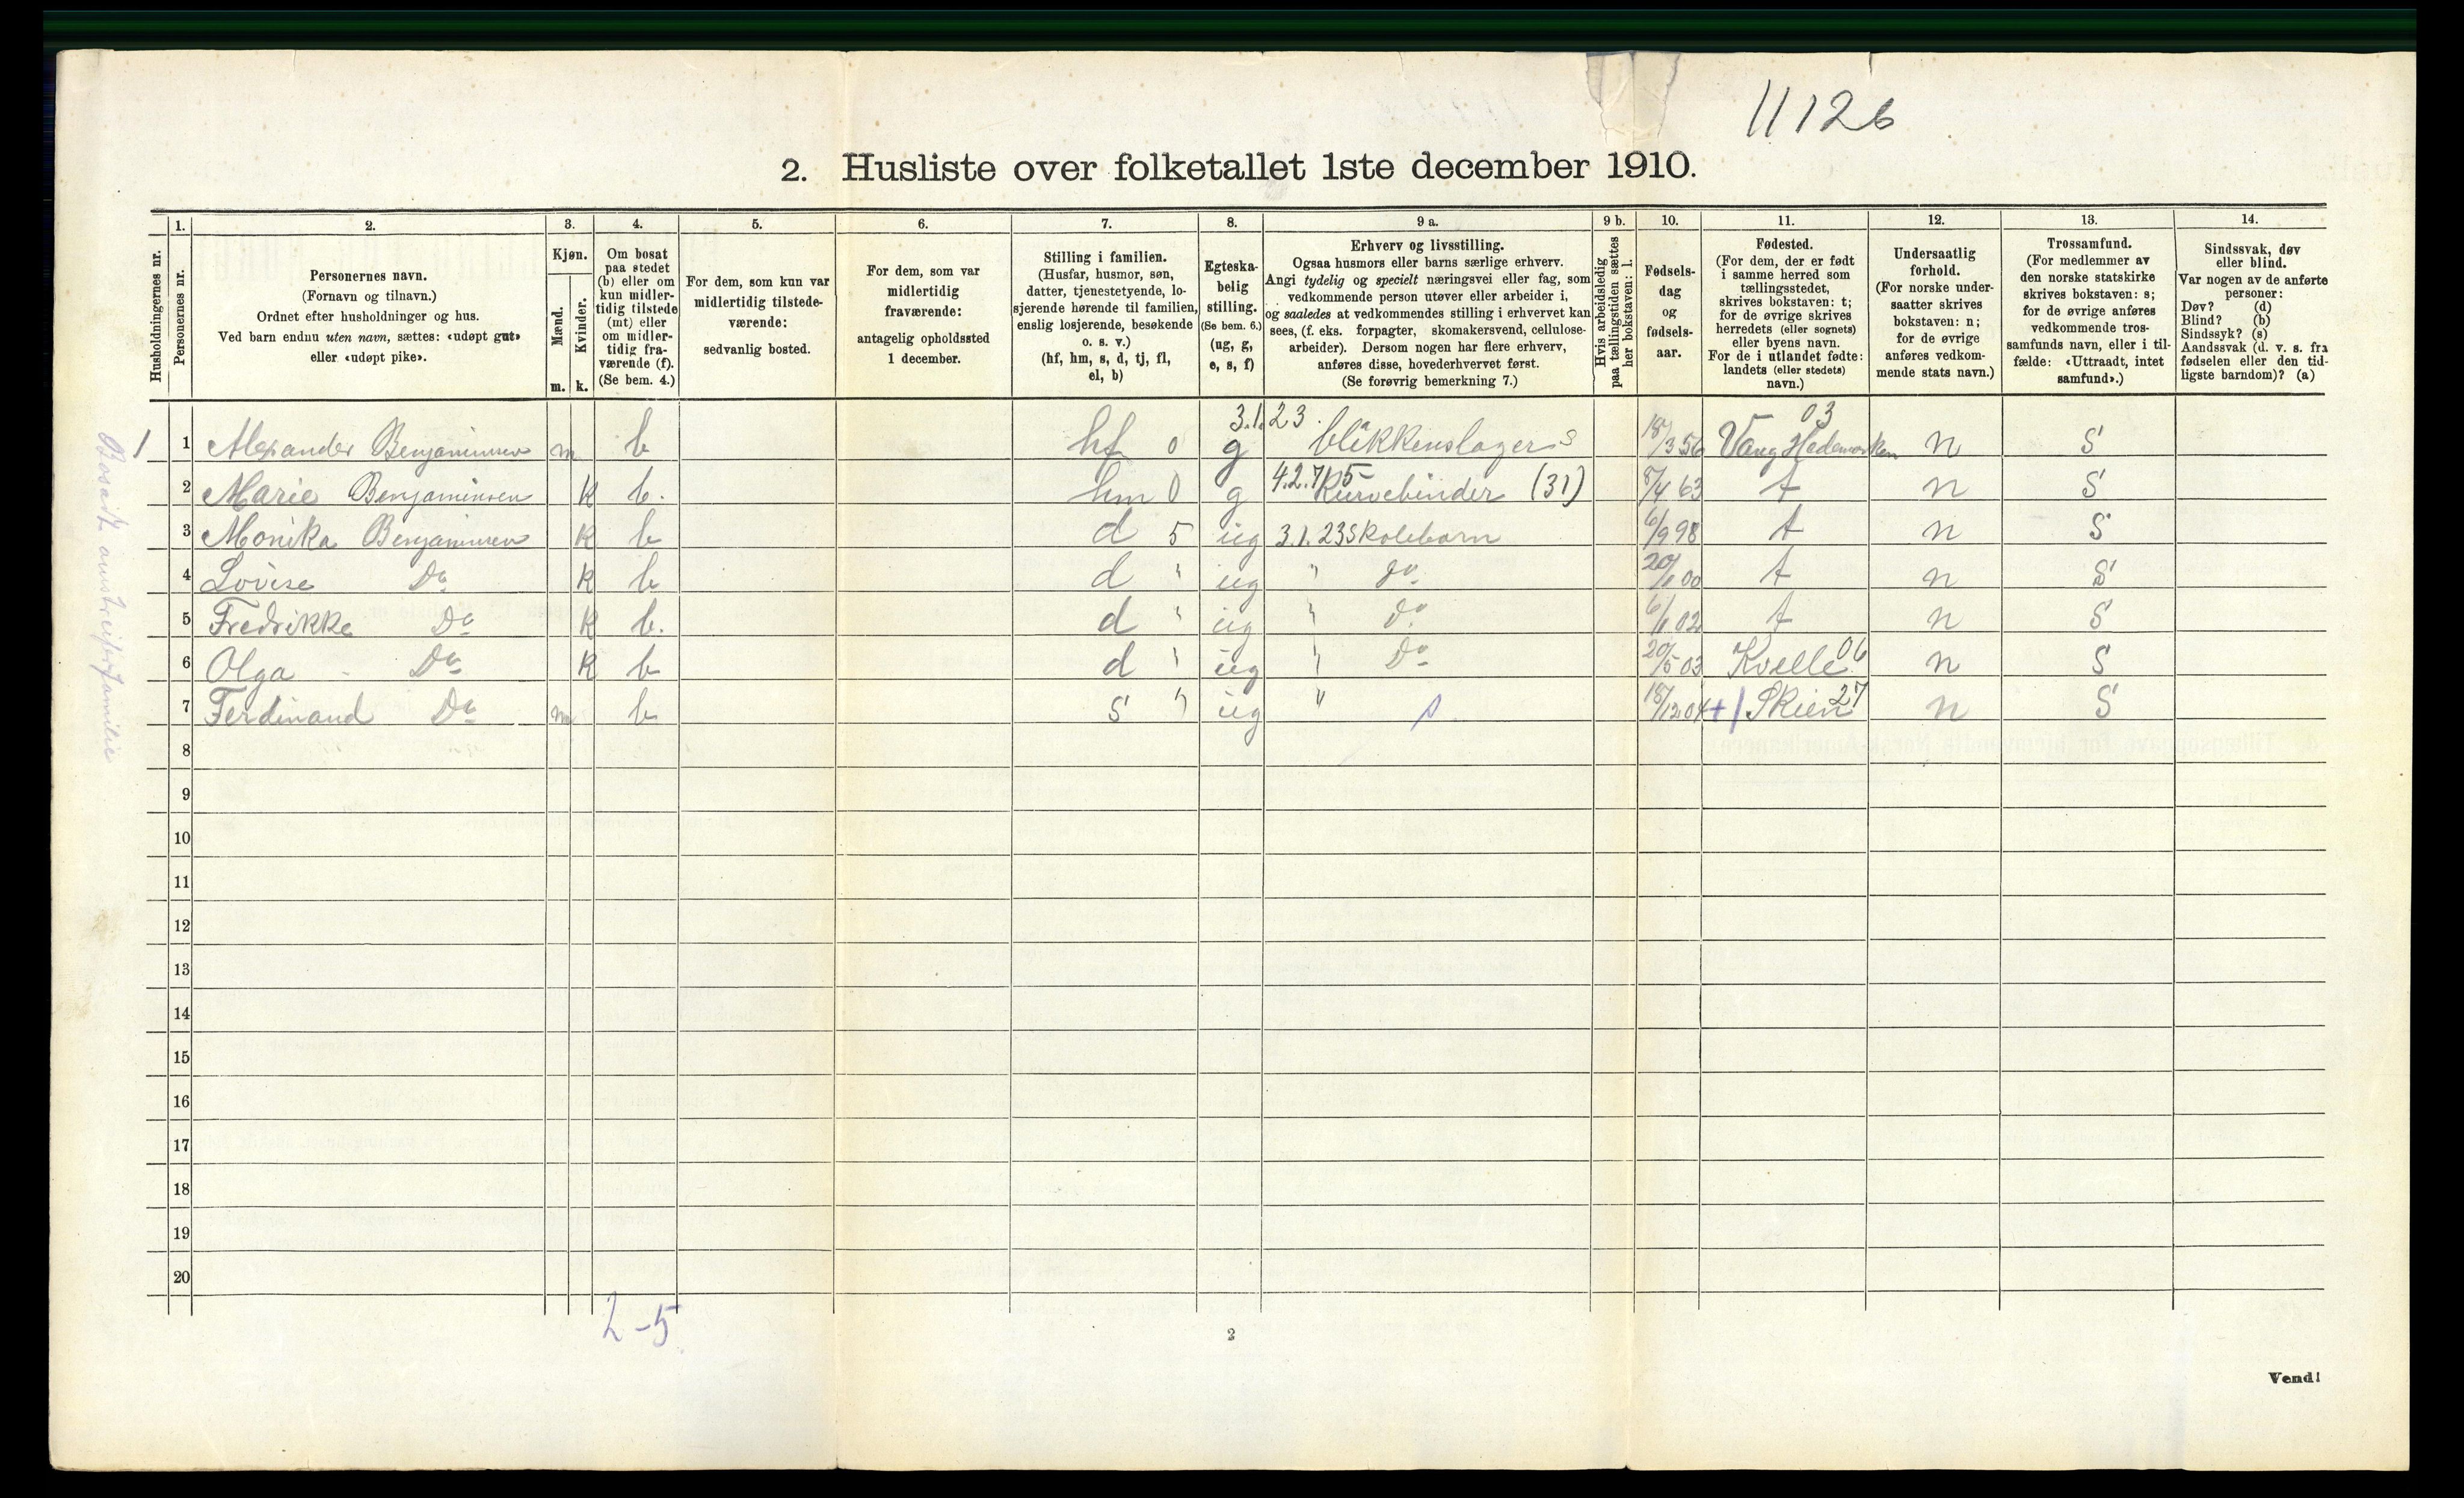 11126
2. Husliste over folketallet 1ste december 1910.
Husholdningernes nr.
1. Personernes nr.
2. Personernes navn.
(Fornavn og tilnavn.)
Ordnet efter husholdninger og hus.
Ved barn endnu uten navn, sættes: «udøpt gut»
eller «udøpt pike».
3. Kjøn.
Mænd. m.
Kvinder. k.
4. Om bosat
paa stedet
(b) eller om
kun midler-
tidig tilstede
(mt) eller
om midler-
tidig fra-
værende (f).
(Se bem. 4.)
5. For dem, som kun var
midlertidig tilstede-
værende:
sedvanlig bosted.
6. For dem, som var
midlertidig
fraværende:
antagelig opholdssted
1 december.
7. Stilling i familien.
(Husfar, husmor, søn,
datter, tjenestetyende, lo-
sjerende hørende til familien,
enslig losjerende, besøkende
o. s. v.)
(hf, hm, s, d, tj, fl,
el, b)
8. Egteska-
belig
stilling.
(Se bem. 6.)
(ug, g,
e, s, f)
9 a. Erhverv og livsstilling.
Ogsaa husmors eller barns særlige erhverv.
Angi tydelig og specielt næringsvei eller fag, som
vedkommende person utøver eller arbeider i,
og saaledes at vedkommendes stilling i erhvervet kan
sees, (f. eks. forpagter, skomakersvend, cellulose-
arbeider). Dersom nogen har flere erhverv,
anføres disse, hovederhvervet først.
(Se forøvrig bemerkning 7.)
9 b. Hvis arbeidsledig
paa tællingstiden sættes
her bokstaven: l.
10. Fødsels-
dag
og
fødsels-
aar.
11. Fødested.
(For dem, der er født
i samme herred som
tællingsstedet,
skrives bokstaven: t;
for de øvrige skrives
herredets (eller sognets)
eller byens navn.
For de i utlandet fødte:
landets (eller stedets)
navn.)
12. Undersaatlig
forhold.
(For norske under-
saatter skrives
bokstaven: n;
for de øvrige
anføres vedkom-
mende stats navn.)
13. Trossamfund.
(For medlemmer av
den norske statskirke
skrives bokstaven: s;
for de øvrige anføres
vedkommende tros-
samfunds navn, eller i til-
fælde: «Uttraadt, intet
samfund».)
14. Sindssvak, døv
eller blind.
Var nogen av de anførte
personer:
Døv? (d)
Blind? (b)
Sindssyk? (s)
Aandssvak (d. v. s. fra
fødselen eller den tid-
ligste barndom)? (a)
3.1.23. 03
1 1 Alexander Benjaminsen m b hf 0 g blikkenslager s 18/3 56 Vang Hedemarken n S
2 Marie Benjaminsen k b. hm 0 g 4.2.75 Kurvebinder (31) 8/4 63 t n S
3 Monika Benjaminsen k b d 5 ug 3.1.23 Skolebarn 6/9 98 t n S
4 Lovise Do k b d " ug " Do 20/1 00 t n S
5 Fredrikke Do k b. d " ug " Do 6/1 02 t n S
6 Olga Do k b d " ug " Do 20/5 03 Kvelle 06 n S
7 Ferdinand Do m b s " ug " s 18/12 04 +| Skien 27 n S
8
9
10
11
12
13
14
15
16
17
18
19
20
2-5
2
Vend!
Bosatt omstreiferfamilie